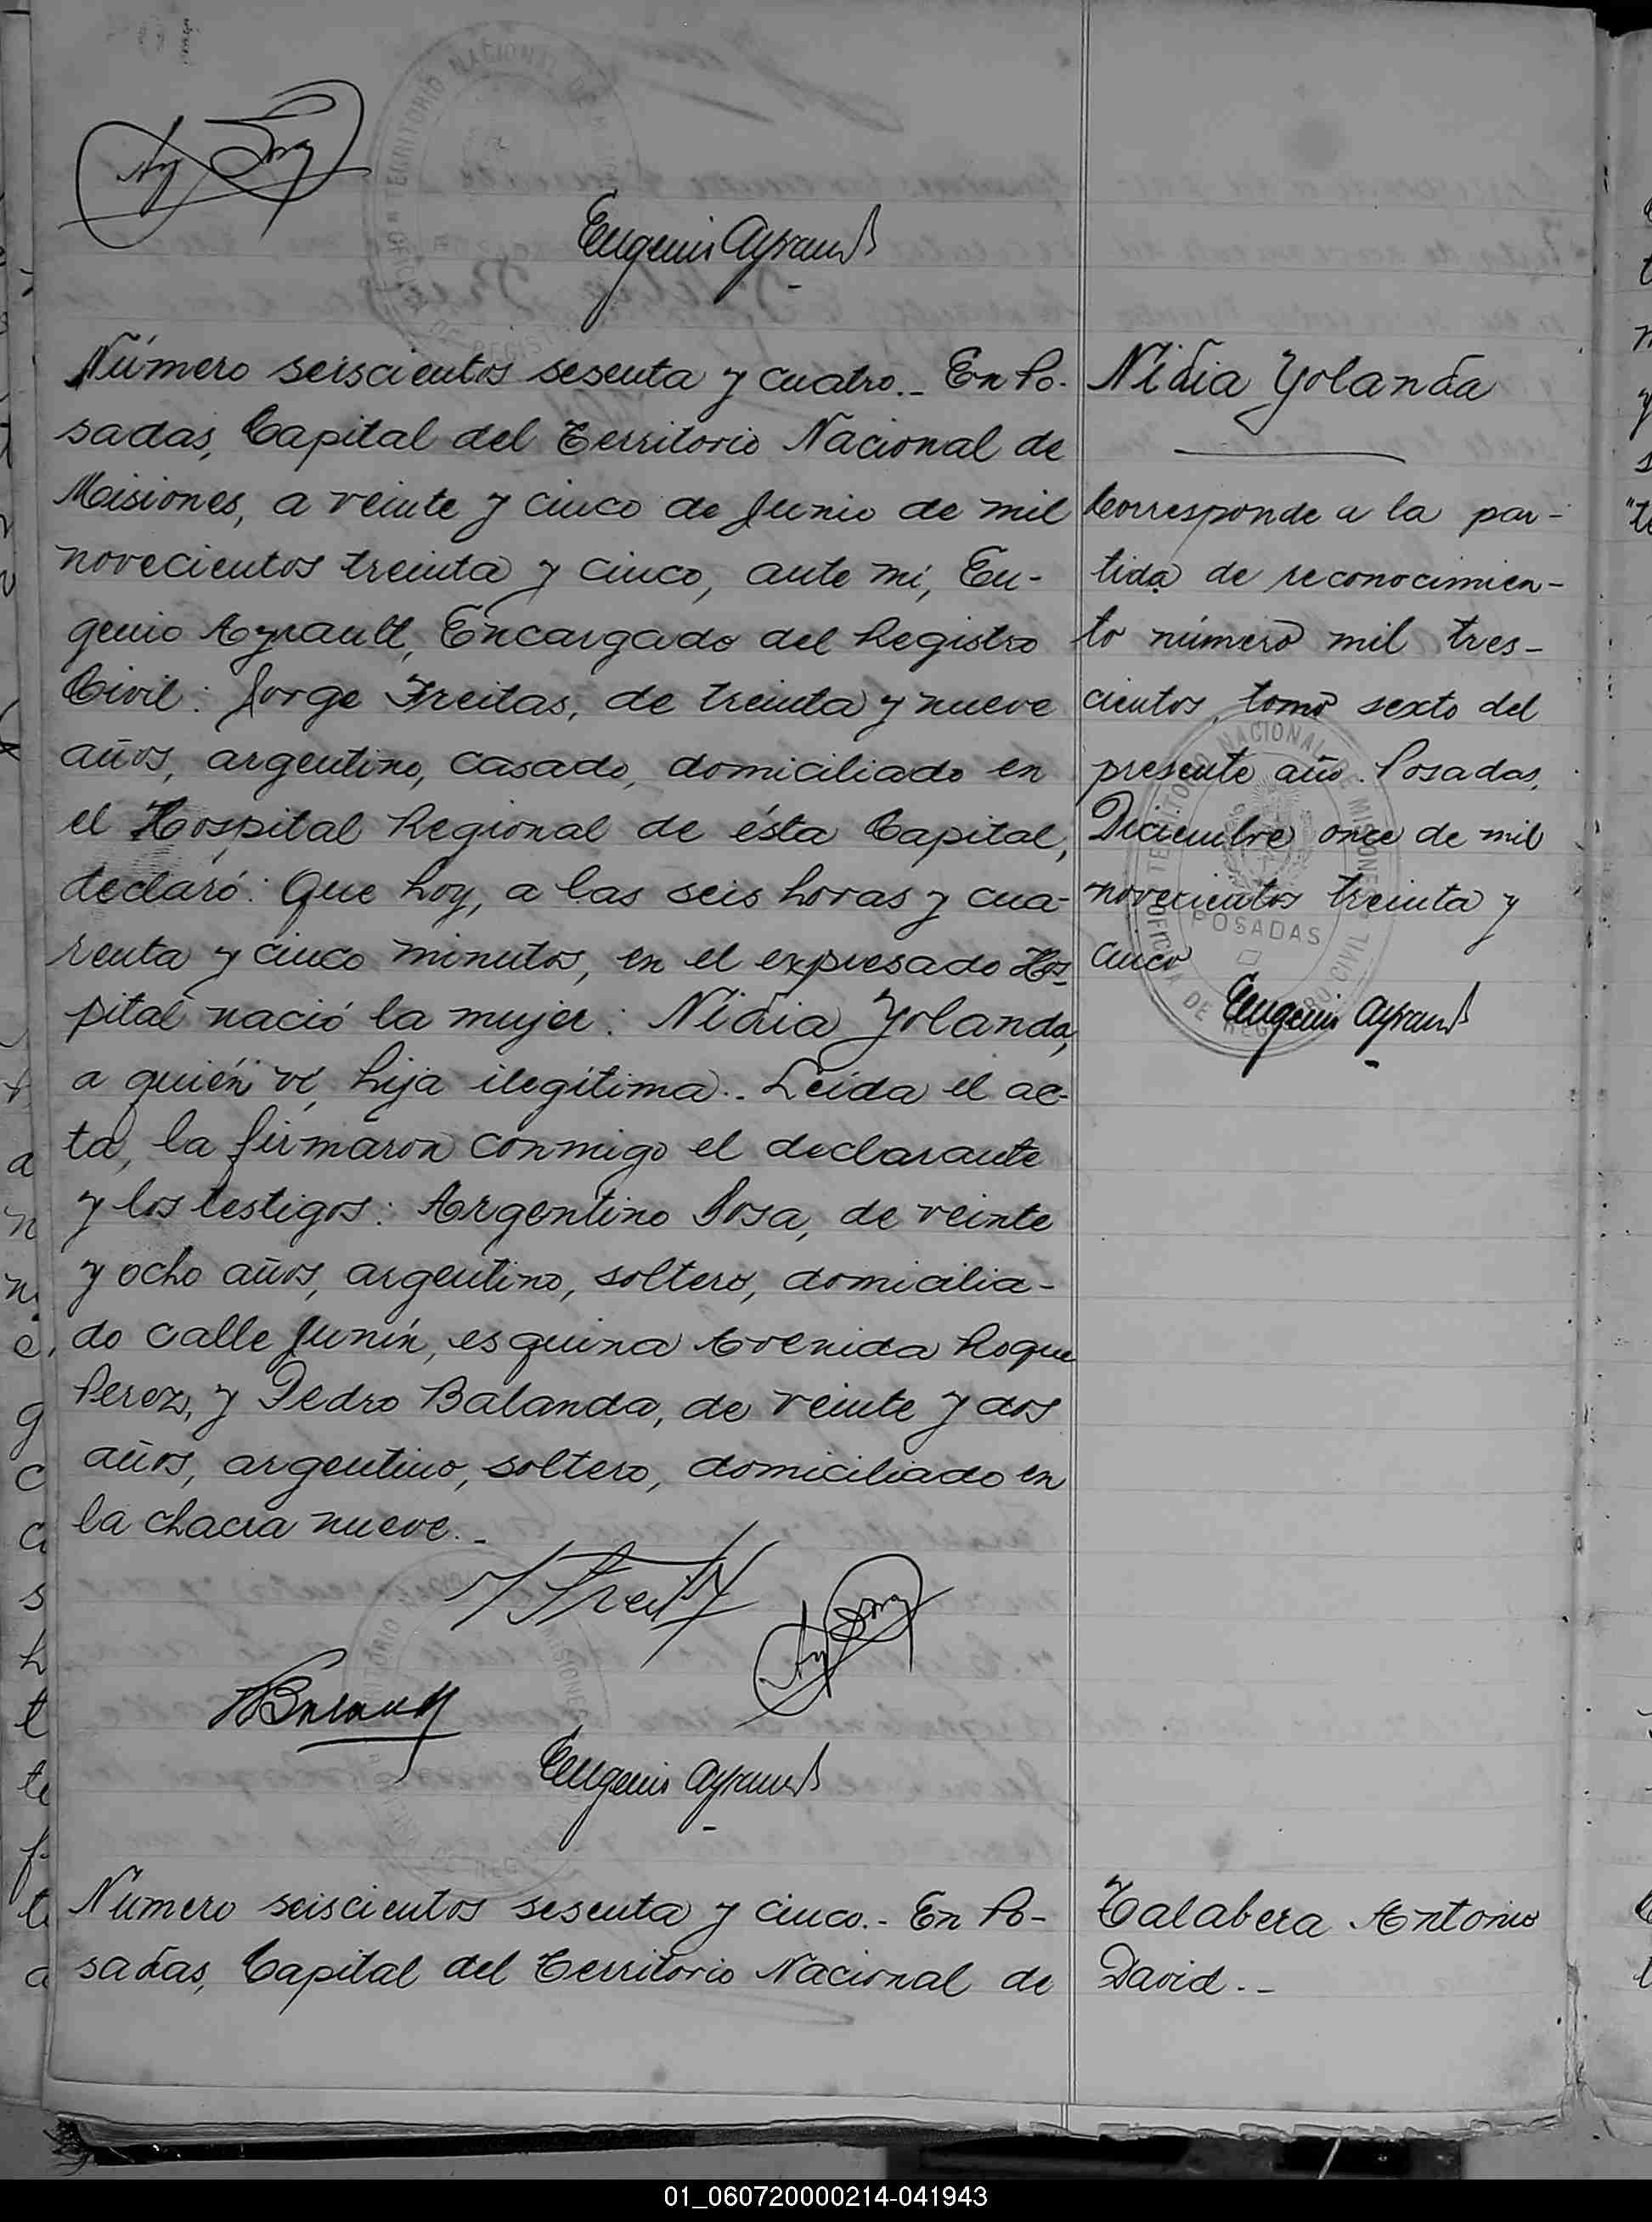 Eugenio Ayrault
Número seiscientos sesenta y cuatro.- En Po-
sadas, Capital del Territorio Nacional de
Misiones, a veinte y cinco de Junio de mil
novecientos treinta y cinco, ante mí, Eu-
genio Ayrault, Encargado del Registro
Civil: Jorge Freitas, de treinta y nueve
años, argentino, casado, domiciliado en
el Hospital Regional de ésta Capital,
declaró: Que hoy, a las seis horas y cua-
renta y cinco minutos, en el expresado Hos-
pital nació la mujer: Nidia Yolanda,
a quién ví, hija ilegítima.. Leída el ac-
ta, la firmaron conmigo el declarante
y los testigos: Argentino Sosa, de veinte
y ocho años, argentino, soltero, domicilia-
do calle Junín, esquina Avenida Roque
Perez, y Pedro Balanda, de veinte y dos
años, argentino, soltero, domiciliado en
la chacra nueve.-
Nidia Yolanda
Corresponde a la par-
tida de reconocimien-
to número mil tres-
cientos, tomo sexto del
presente año. Posadas,
Diciembre once de mil
novecientos treinta y
cinco
Eugenio Ayrault
OFICINA DE REGISTRO CIVIL TERRITORIO NACIONAL DE MISIONES
POSADAS
J Freitas
PBalanda
Eugenio Ayrault
Número seiscientos sesenta y cinco.- En Po-
sadas, Capital del Territorio Nacional de
Talabera Antonio
David.--
01_060720000214-041943